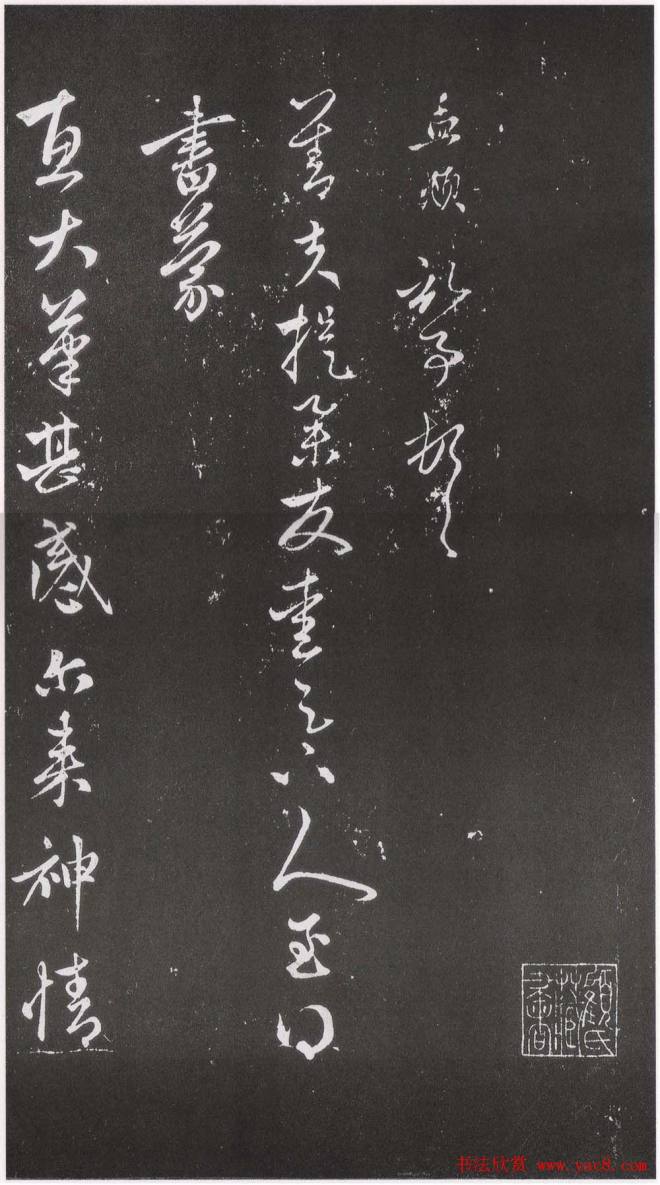 孟頫記事頓首
善夫提舉友愛足下人至得
書蒙
惠大筆甚感尔来神情
顧氏
书法欣赏 www.yac8.com